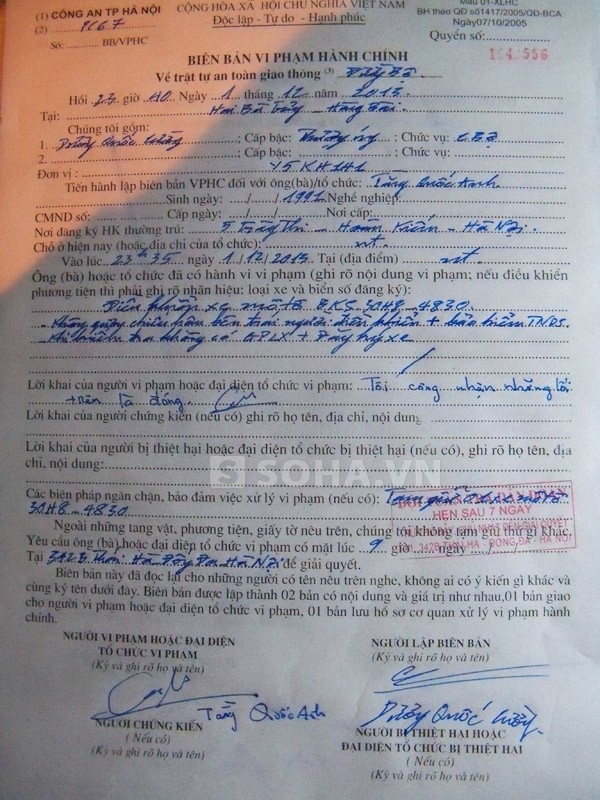 (1) CÔNG AN TP HÀ NỘI
CỘNG HÒA XÃ HỘI CHỦ NGHĨA VIỆT NAM
Mẫu 01-XLHC
(2)
Độc lập - Tự do - Hạnh phúc
BH theo QĐ số1417/2005/QĐ-BCA
Ngày07/10/2005
Số: BB/VPHC
Quyển số:
BIÊN BẢN VI PHẠM HÀNH CHÍNH
Về trật tự an toàn giao thông (3) Đường Bộ
Hồi 23 giờ 40 Ngày 1 tháng 12 năm 2013
Tại: Hai Bà Trưng - Hàng Bài
Chúng tôi gồm:
1. Dương Quốc ; Cấp bậc: Thượng úy ; Chức vụ: CBộ
2. ; Cấp bậc: ; Chức vụ:
Đơn vị: Y5 KH141
Tiến hành lập biên bản VPHC đối với ông(bà)/tổ chức: Tăng Quốc Anh
Sinh ngày: / / 1991 Nghề nghiệp:
CMND số: Cấp ngày: / / Nơi cấp:
Nơi đăng ký HK thường trú: 5 Tràng Thi - Hoàn Kiếm - Hà Nội
Chỗ ở hiện nay (hoặc địa chỉ của tổ chức): nt
Vào lúc 23h35 ngày 1 / 12 / 2013. Tại (địa điểm) nt.
Ông (bà) hoặc tổ chức đã có hành vi vi phạm (ghi rõ nội dung vi phạm; nếu điều khiển
phương tiện thì phải ghi rõ nhãn hiệu: loại xe và biển số đăng ký):
Điều khiển xe mô tô BKS 30H8-4830
- Không gương chiếu hậu bên trái người điều khiển + bảo hiểm TNDS.
- Khi kiểm tra không có GPLX + Đăng ký xe
Lời khai của người vi phạm hoặc đại diện tổ chức vi phạm: Tôi công nhận những lỗi
trên là đúng
Lời khai của người chứng kiến (nếu có) ghi rõ họ tên, địa chỉ, nội dung
Lời khai của người bị thiệt hại hoặc đại diện tổ chức bị thiệt hại (nếu có), ghi rõ họ tên, địa
chỉ, nội dung:
SOHA.VN
Các biện pháp ngăn chặn, bảo đảm việc xử lý vi phạm (nếu có): Tạm giữ xe mô tô
30H8-4830
HẸN SAU 7 NGÀY
Ngoài những tang vật, phương tiện, giấy tờ nêu trên, chúng tôi không tạm giữ thứ gì khác.
Yêu cầu ông (bà) hoặc đại diện tổ chức vi phạm có mặt lúc 9 giờ ngày
Tại 342B Thái Hà Đống Đa Hà Nội để giải quyết.
Biên bản này đã đọc lại cho những người có tên nêu trên nghe, không ai có ý kiến gì khác và
cùng ký tên dưới đây. Biên bản được lập thành 02 bản có nội dung và giá trị như nhau,01 bản giao
cho người vi phạm hoặc đại diện tổ chức vi phạm, 01 bản lưu hồ sơ cơ quan xử lý vi phạm hành
chính.
NGƯỜI VI PHẠM HOẶC ĐẠI DIỆN
TỔ CHỨC VI PHẠM
(Ký và ghi rõ họ và tên)
NGƯỜI LẬP BIÊN BẢN
(Ký và ghi rõ họ và tên)
Tăng Quốc Anh
Dương Quốc
NGƯỜI CHỨNG KIẾN
(Nếu có)
(Ký và ghi rõ họ và tên)
NGƯỜI BỊ THIỆT HẠI HOẶC
ĐẠI DIỆN TỔ CHỨC BỊ THIỆT HẠI
(Nếu có)
(Ký và ghi rõ họ và tên)